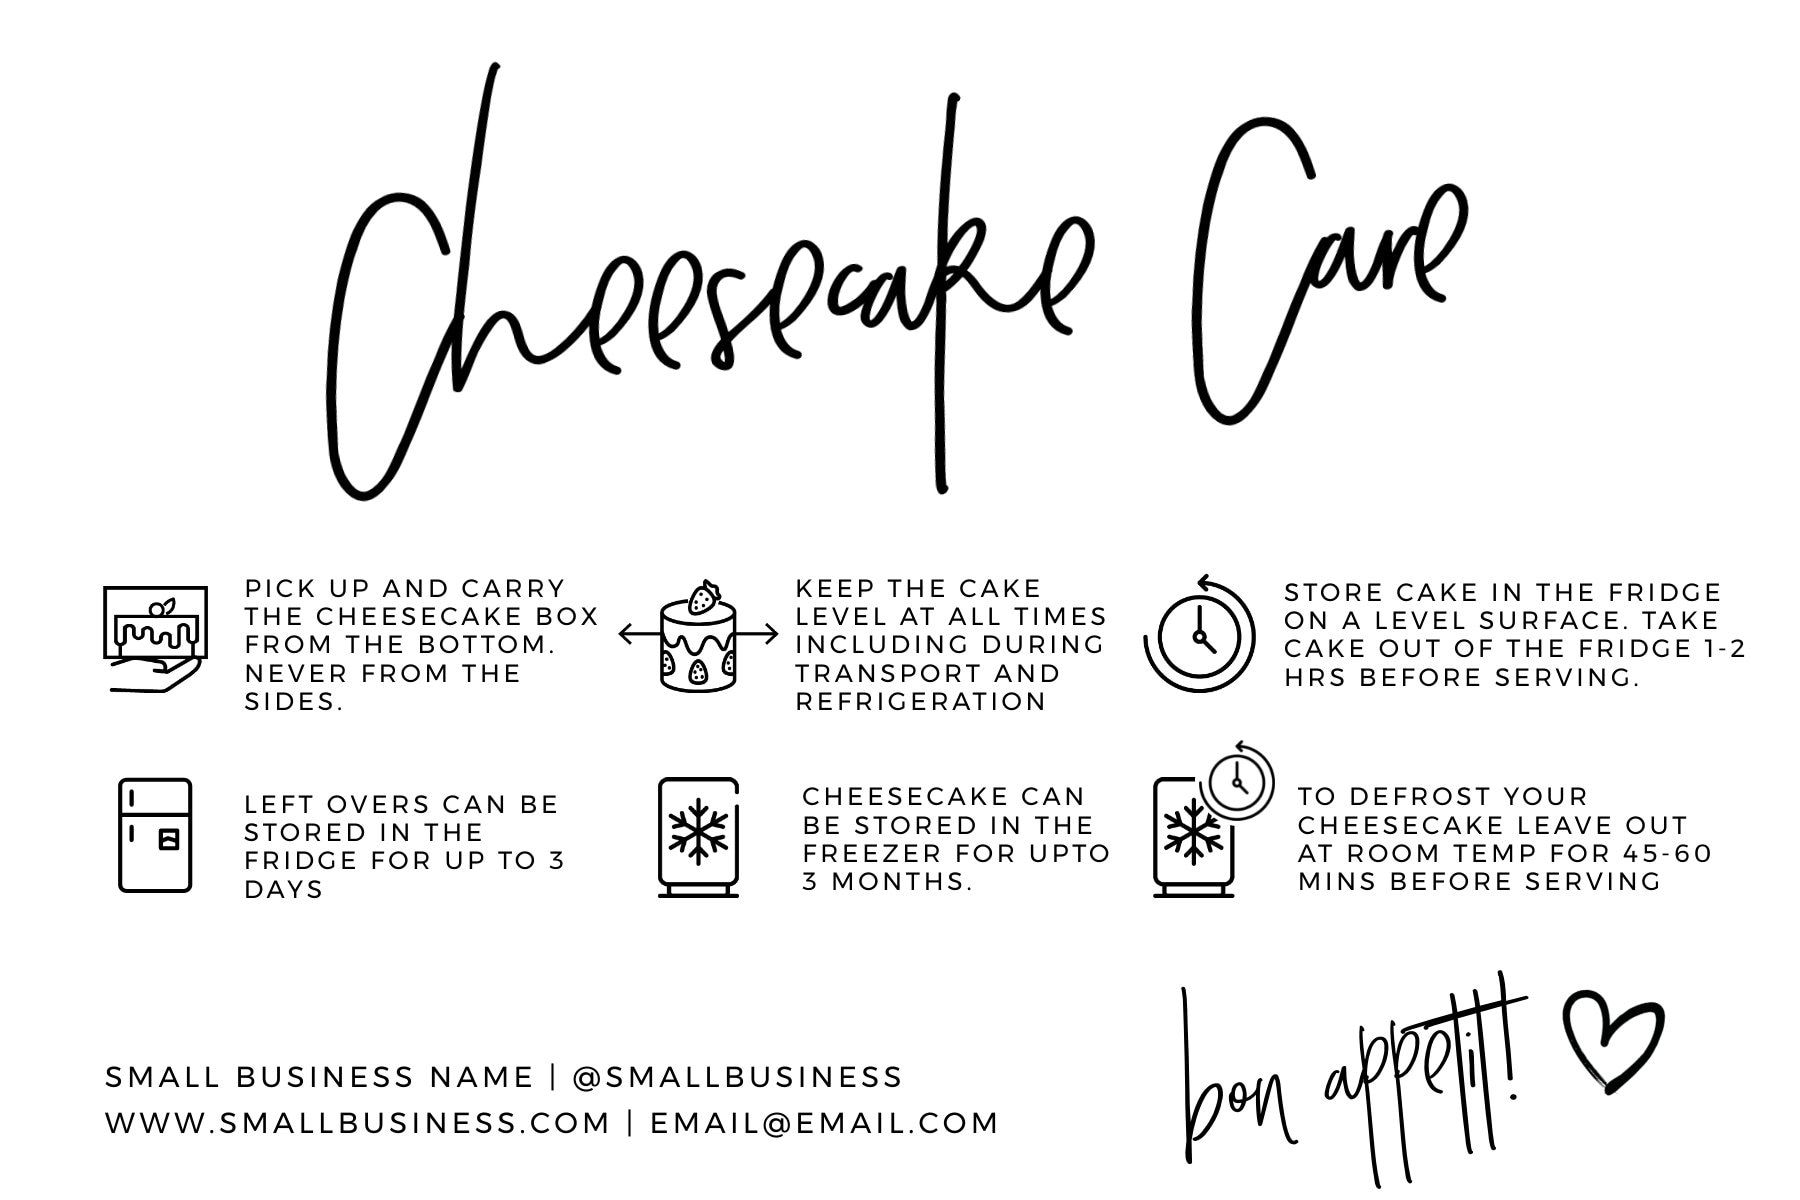 Cheesecake Care
PICK UP AND CARRY
THE CHEESECAKE BOX
FROM THE BOTTOM.
NEVER FROM THE
SIDES.
KEEP THE CAKE
LEVEL AT ALL TIMES
INCLUDING DURING
TRANSPORT AND
REFRIGERATION
STORE CAKE IN THE FRIDGE
ON A LEVEL SURFACE. TAKE
CAKE OUT OF THE FRIDGE 1-2
HRS BEFORE SERVING.
LEFT OVERS CAN BE
STORED IN THE
FRIDGE FOR UP TO 3
DAYS
CHEESECAKE CAN
BE STORED IN THE
FREEZER FOR UPTO
3 MONTHS.
TO DEFROST YOUR
CHEESECAKE LEAVE OUT
AT ROOM TEMP FOR 45-60
MINS BEFORE SERVING
SMALL BUSINESS NAME | @SMALLBUSINESS
WWW.SMALLBUSINESS.COM | EMAIL@EMAIL.COM
bon appetit!